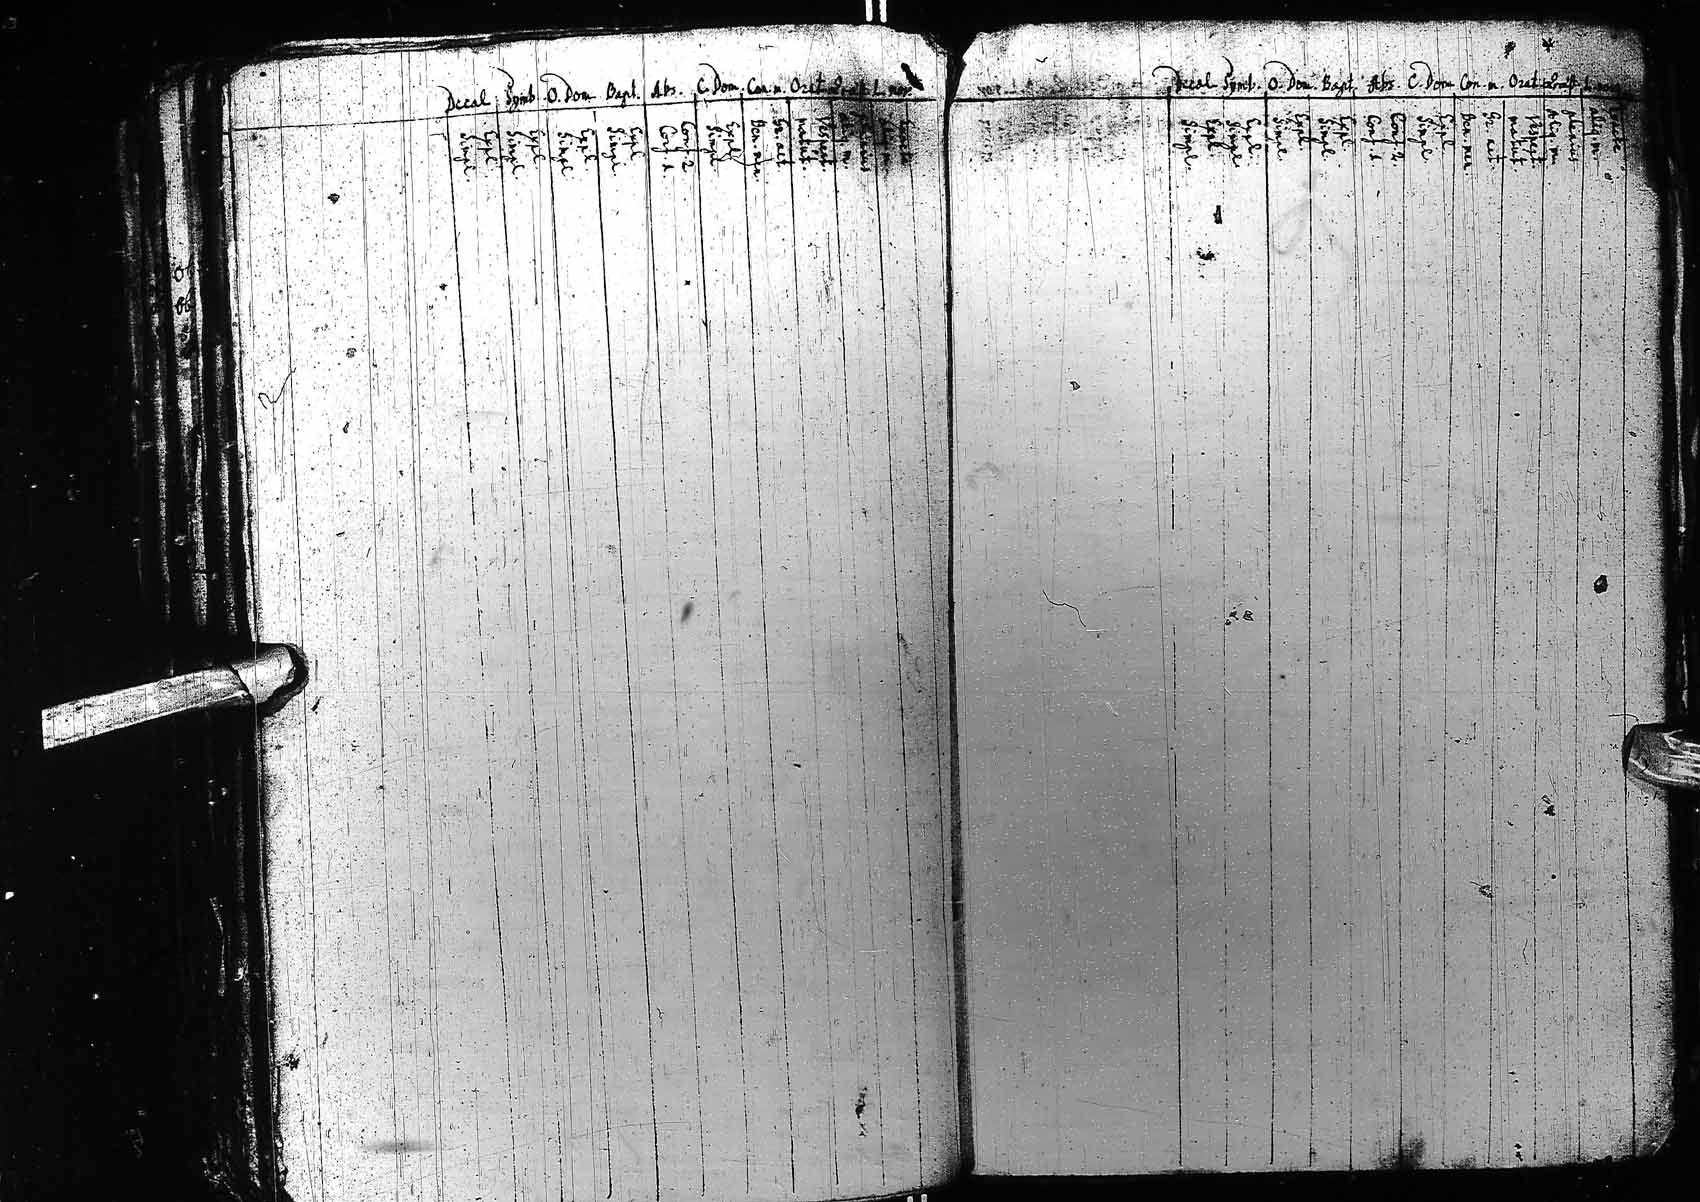 Decal. Symb. O. Dom. Bapt. Abs. C. Dom. Con. m. Orat.
Simpl. Expl. Simpl. Expl. Simpl. Expl. Simpl. Expl. Conf. 1. Conf. 2. Simpl. Expl. Ben. me. Gr. act. matut. Vespert. Aliq. m.
Decal. Symb. O. Dom. Bapt. Abs. C. Dom. Con. m. Orat.
Simpl. Expl. Simpl. Expl. Simpl. Expl. Simpl. Expl. Conf. 1. Conf. 2. Simpl. Expl. Ben. me. Gr. act. matut. Vespert. Aliq. m. plenius Aliq. m.